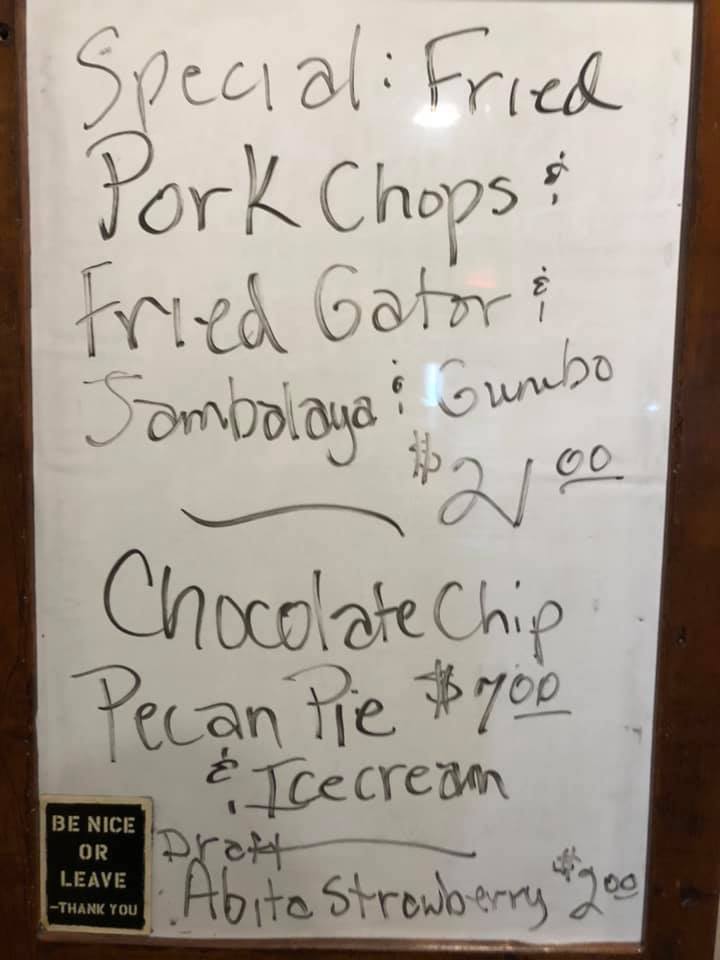 Special: Fried
Pork Chops &
Fried Gator &
Jambalaya & Gumbo
$21.00
Chocolate Chip
Pecan Pie $7.00
& Icecream
Draft
Abita Strawberry $2.00
BE NICE
OR
LEAVE
-THANK YOU